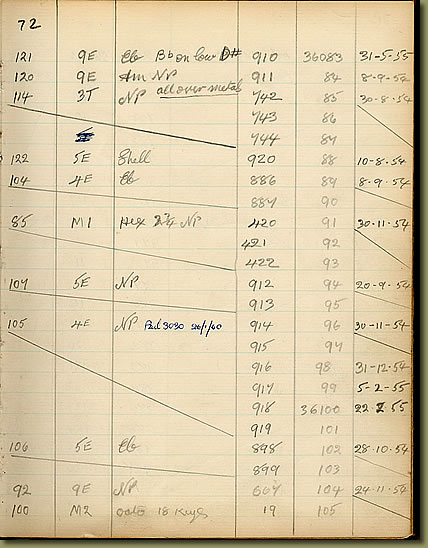 72
121 9E Eb Bb on low D# 910 36083 31-5-55
120 9E Am NP 911 84 8-9-54
114 3T NP all over metal 742 85 30-8-54
743 86
744 87
122 5E Shell 920 88 10-8-54
104 4E Eb 886 89 8-9-54
887 90
85 M1 Hex 2¾ NP 420 91 30-11-54
421 92
422 93
107 5E NP 912 94 20-9-54
913 95
105 4E NP Pad 3030 1/60 914 96 30-11-54
915 97
916 98 31-12-54
917 99 5-2-55
918 36100 22 2 55
919 101
106 5E Eb 898 102 28-10-54
899 103
92 9E NP 667 104 24-11-54
100 M2 18 Keys 19 105